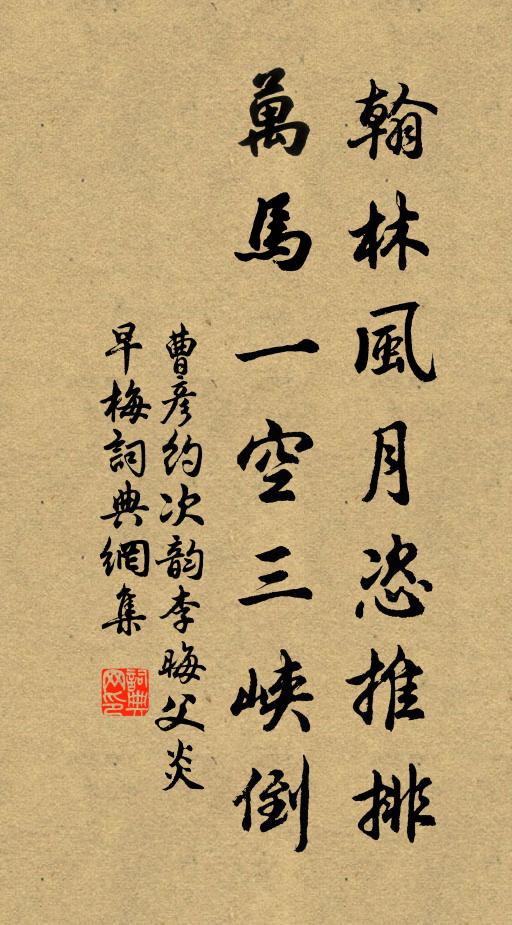 翰林風月恣推排
萬馬一空三峽倒
曹彥約次韵李晦父炎
早梅詞典網集
詞典网印